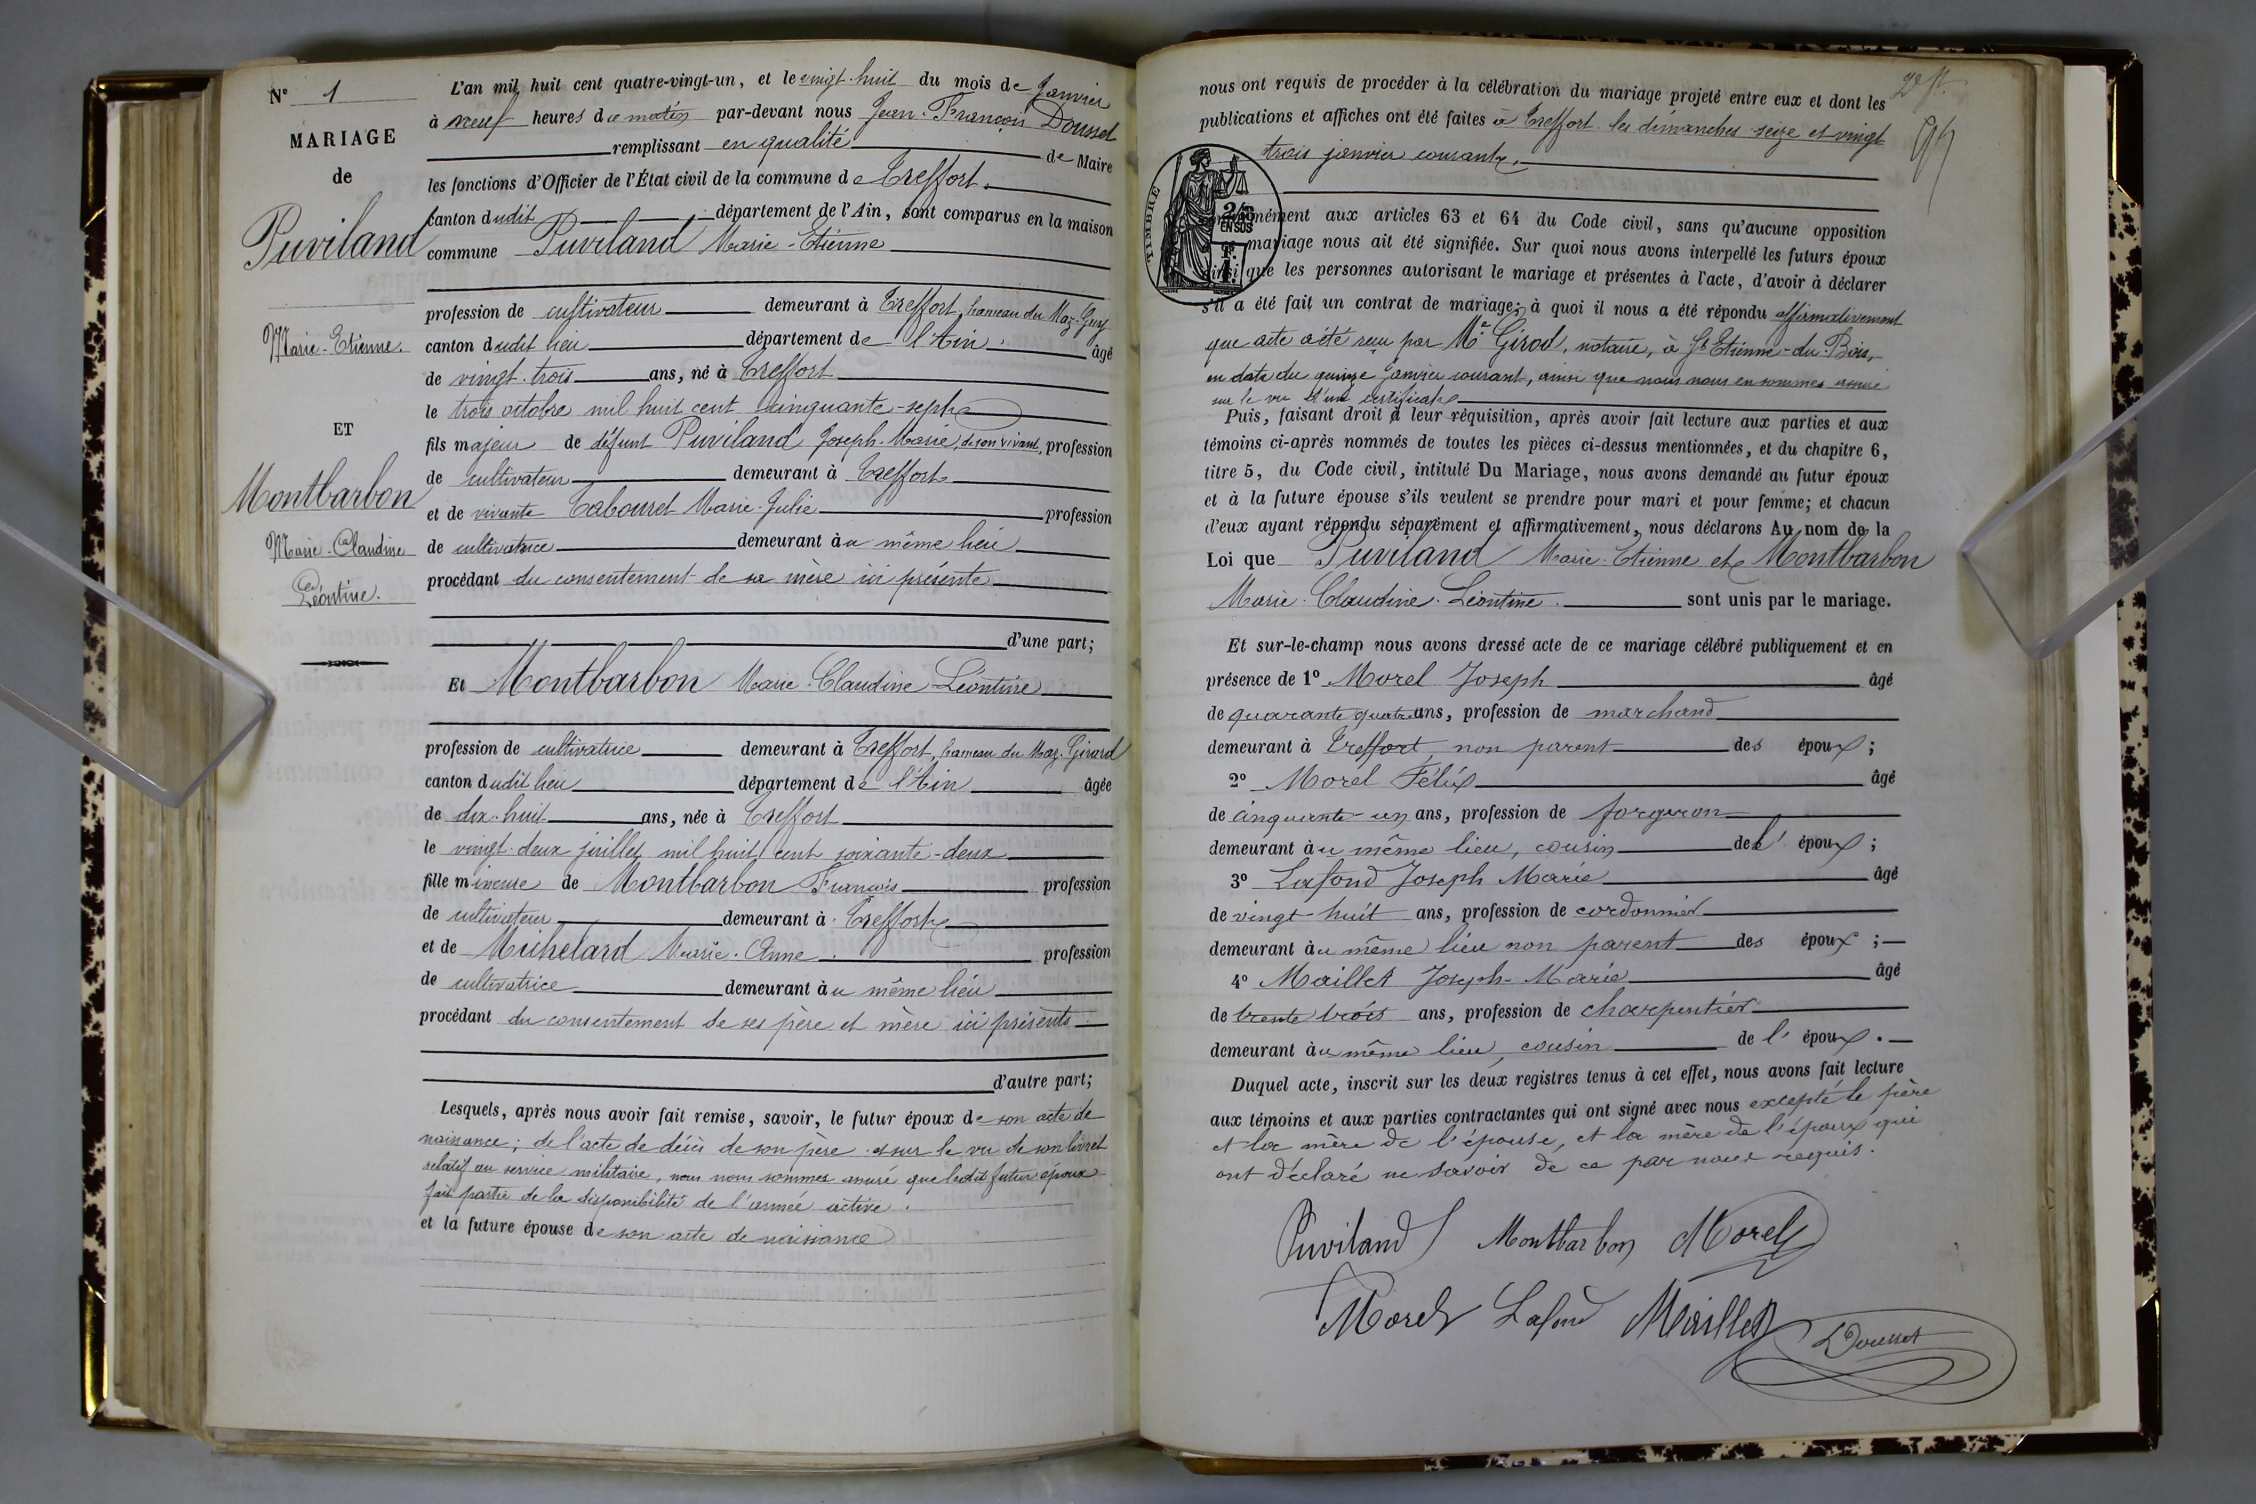 N° 1
MARIAGE
de
Puviland
Marie-Etienne.
ET
Montbarbon
Marie-Claudine
Léontine.
L'an mil huit cent quatre-vingt-un, et le vingt-huit du mois de Janvier
à neuf heures du matin par-devant nous Jean-François Dousset
remplissant en qualité de Maire
les fonctions d'Officier de l'État civil de la commune de Treffort.
canton dudit département de l'Ain, sont comparus en la maison
commune Puviland Marie-Etienne
profession de cultivateur demeurant à Treffort, hameau du Maz-Guy
canton dudit lieu département de l'Ain. âgé
de vingt-trois ans, né à Treffort
le trois octobre mil huit cent cinquante-sept
fils majeur de défunt Puviland Joseph-Marie, de son vivant, profession
de cultivateur demeurant à Treffort
et de vivante Tabouret Marie-Julie profession
de cultivatrice demeurant au même lieu
procédant du consentement de sa mère ici présente
d'une part;
Et Montbarbon Marie-Claudine-Léontine
profession de cultivatrice demeurant à Treffort, hameau du Maz-Girard
canton dudit lieu département de l'Ain âgée
de dix-huit ans, née à Treffort
le vingt-deux juillet mil huit cent soixante-deux
fille mineure de Montbarbon François profession
de cultivateur demeurant à Treffort
et de Michelard Marie-Anne profession
de cultivatrice demeurant au même lieu
procédant du consentement de ses père et mère ici présents
d'autre part;
Lesquels, après nous avoir fait remise, savoir, le futur époux de son acte de
naissance; de l'acte de décès de son père et sur le vu de son livret
relatif au service militaire, nous nous sommes assuré que ledit futur époux
fait partie de la disponibilité de l'armée active.
et la future épouse de son acte de naissance
nous ont requis de procéder à la célébration du mariage projeté entre eux et dont les
publications et affiches ont été faites à Treffort les dimanches seize et vingt
trois janvier courant.
TIMBRE
2/10 EN SUS
conformément aux articles 63 et 64 du Code civil, sans qu'aucune opposition
mariage nous ait été signifiée. Sur quoi nous avons interpellé les futurs époux
ainsi que les personnes autorisant le mariage et présentes à l'acte, d'avoir à déclarer
s'il a été fait un contrat de mariage; à quoi il nous a été répondu affirmativement
que acte a été reçu par Me Girod, notaire, à St Etienne-du-Bois,
en date du quinze Janvier courant, ainsi que nous nous en sommes assuré
sur le vu d'un certificat
Puis, faisant droit à leur réquisition, après avoir fait lecture aux parties et aux
témoins ci-après nommés de toutes les pièces ci-dessus mentionnées, et du chapitre 6,
titre 5, du Code civil, intitulé Du Mariage, nous avons demandé au futur époux
et à la future épouse s'ils veulent se prendre pour mari et pour femme; et chacun
d'eux ayant répondu séparément et affirmativement, nous déclarons Au nom de la
Loi que Puviland Marie-Etienne et Montbarbon
Marie-Claudine-Léontine. sont unis par le mariage.
Et sur-le-champ nous avons dressé acte de ce mariage célébré publiquement et en
présence de 1° Morel Joseph âgé
de quarante quatre ans, profession de marchand
demeurant à Treffort, non parent des époux;
2° Morel Félix âgé
de cinquante-un ans, profession de forgeron
demeurant au même lieu, cousin de l' époux;
3° Lafond Joseph Marie âgé
de vingt-huit ans, profession de cordonnier
demeurant au même lieu non parent des époux;
4° Maillet Joseph-Marie âgé
de trente trois ans, profession de charpentier
demeurant au même lieu cousin de l' époux.
Duquel acte, inscrit sur les deux registres tenus à cet effet, nous avons fait lecture
aux témoins et aux parties contractantes qui ont signé avec nous excepté le père
et la mère de l'épouse, et la mère de l'époux qui
ont déclaré ne savoir de ce par nous requis.
Puviland Montbarbon Morel
Morel Lafond Maillet Dousset